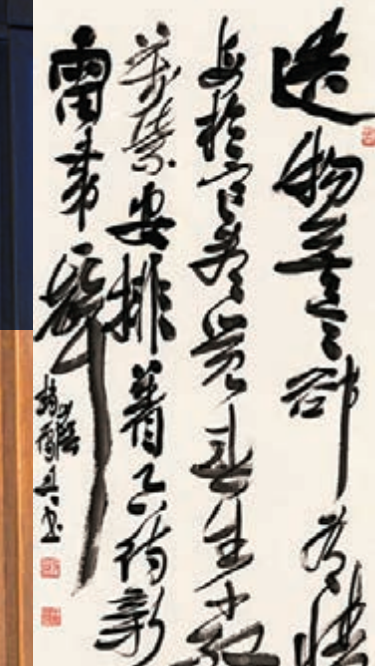 造物無言卻有情
每於寒盡覺春生千紅
萬紫安排着只待新
雷第一聲